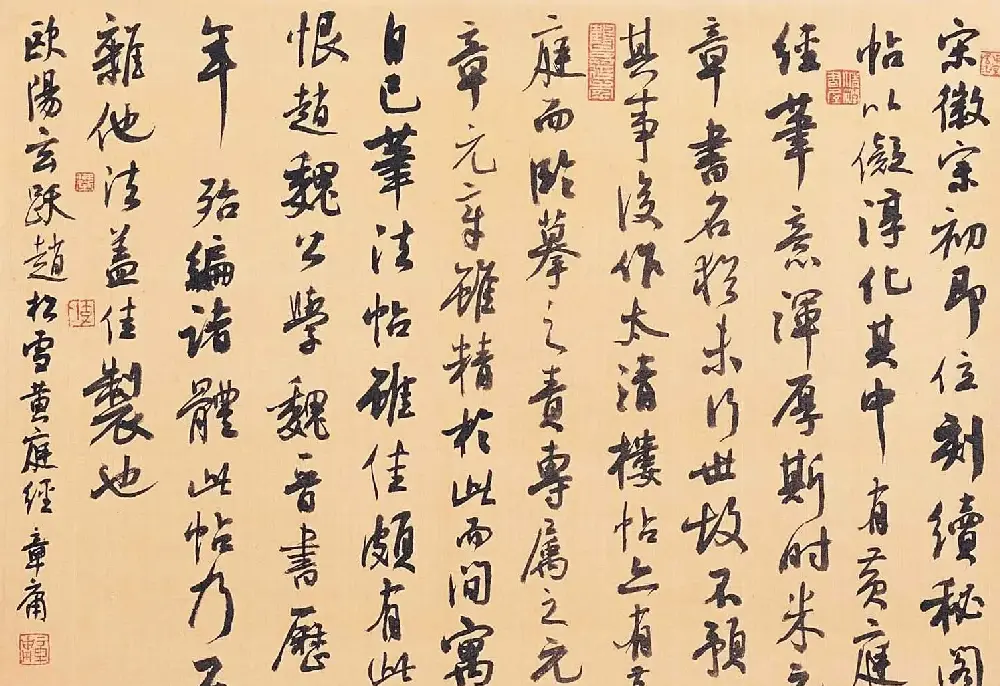 宋徽宗初即位刻續秘閣
帖以儗淳化其中有黄庭
經筆意渾厚斯时米元
章書名猶未行世故不預
其事後作太清樓帖亦有
庭而臨摹之責專属之元
章元章雖精於此而间寓
自己筆法帖雖佳頗有此
恨趙魏公學魏晋書歷
年殆編諸體此帖乃不
雜他法蓋佳製也
歐陽玄跋趙松雪黄庭經 章甫